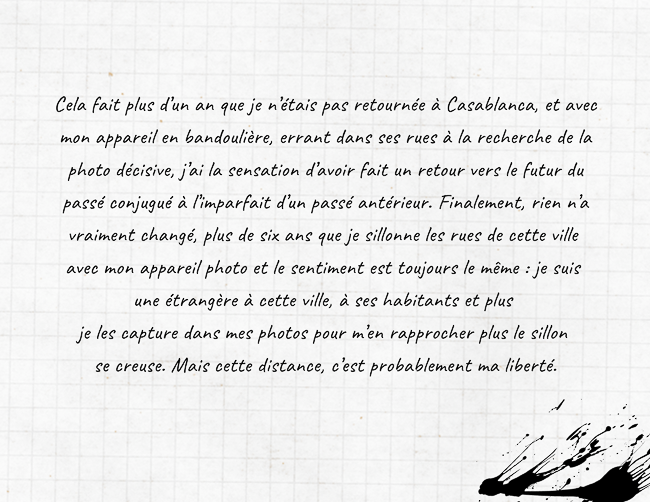 Cela fait plus d'un an que je n'étais pas retournée à Casablanca, et avec
mon appareil en bandoulière, errant dans ses rues à la recherche de la
photo décisive, j'ai la sensation d'avoir fait un retour vers le futur du
passé conjugué à l'imparfait d'un passé antérieur. Finalement, rien n'a
vraiment changé, plus de six ans que je sillonne les rues de cette ville
avec mon appareil photo et le sentiment est toujours le même : je suis
une étrangère à cette ville, à ses habitants et plus
je les capture dans mes photos pour m'en rapprocher plus le sillon
se creuse. Mais cette distance, c'est probablement ma liberté.